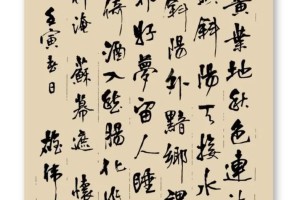 黄葉地秋色連
映斜陽天接水
斜陽外黯鄉魂
非好夢留人睡
倚酒入愁腸化作
仲淹蘇幕遮懷
壬寅春日 雄偉